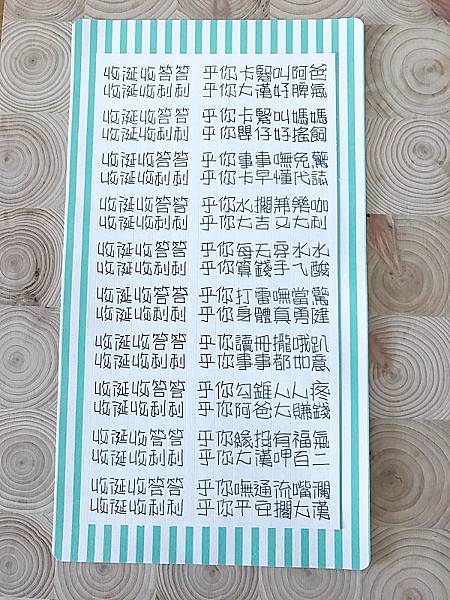 收涎收答答 乎你卡緊叫阿爸
收涎收利利 乎你大漢好脾氣
收涎收答答 乎你卡緊叫媽媽
收涎收利利 乎你嬰仔好搖飼
收涎收答答 乎你事事嘸免驚
收涎收利利 乎你卡早懂代誌
收涎收答答 乎你水擱兼樂咖
收涎收利利 乎你大吉又大利
收涎收答答 乎你每天穿水水
收涎收利利 乎你算錢手ㄟ酸
收涎收答答 乎你打雷嘸當驚
收涎收利利 乎你身體真勇健
收涎收答答 乎你讀冊攏哦趴
收涎收利利 乎你事事都如意
收涎收答答 乎你勾錐人人疼
收涎收利利 乎你阿爸大賺錢
收涎收答答 乎你緣投有福氣
收涎收利利 乎你大漢呷百二
收涎收答答 乎你嘸通流嘴瀾
收涎收利利 乎你平安擱大漢